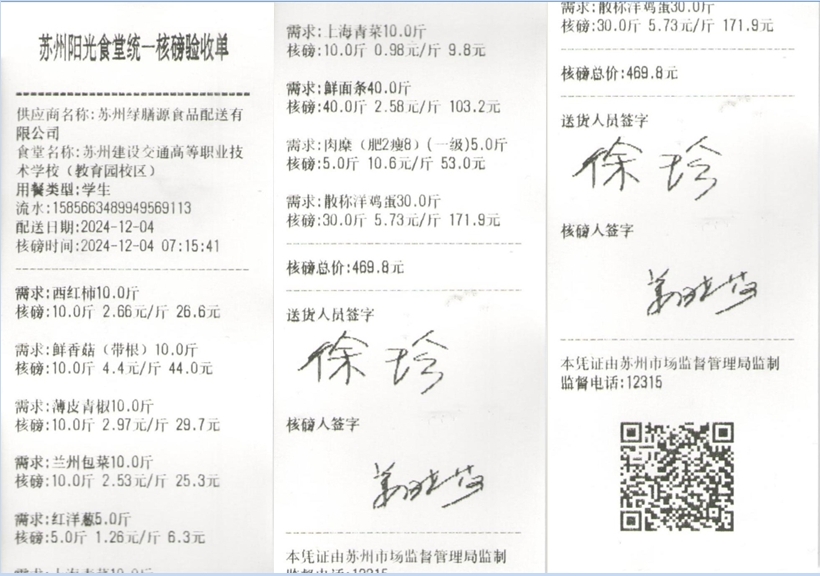 苏州阳光食堂统一核磅验收单
供应商名称:苏州绿膳源食品配送有
限公司
食堂名称:苏州建设交通高等职业技
术学校（教育园校区）
用餐类型:学生
流水:1585663489949569113
配送日期:2024-12-04
核磅时间:2024-12-04 07:15:41
需求:西红柿10.0斤
核磅:10.0斤 2.66元/斤 26.6元
需求:鲜香菇（带根）10.0斤
核磅:10.0斤 4.4元/斤 44.0元
需求:薄皮青椒10.0斤
核磅:10.0斤 2.97元/斤 29.7元
需求:兰州包菜10.0斤
核磅:10.0斤 2.53元/斤 25.3元
需求:红洋葱5.0斤
核磅:5.0斤 1.26元/斤 6.3元
需求:上海青菜10.0斤
需求:上海青菜10.0斤
核磅:10.0斤 0.98元/斤 9.8元
需求:鲜面条40.0斤
核磅:40.0斤 2.58元/斤 103.2元
需求:肉糜（肥2瘦8）(一级)5.0斤
核磅:5.0斤 10.6元/斤 53.0元
需求:散称洋鸡蛋30.0斤
核磅:30.0斤 5.73元/斤 171.9元
核磅总价:469.8元
送货人员签字
徐珍
核磅人签字
本凭证由苏州市场监督管理局监制
监督电话:12315
需求:散称洋鸡蛋30.0斤
核磅:30.0斤 5.73元/斤 171.9元
核磅总价:469.8元
送货人员签字
徐珍
核磅人签字
本凭证由苏州市场监督管理局监制
监督电话:12315